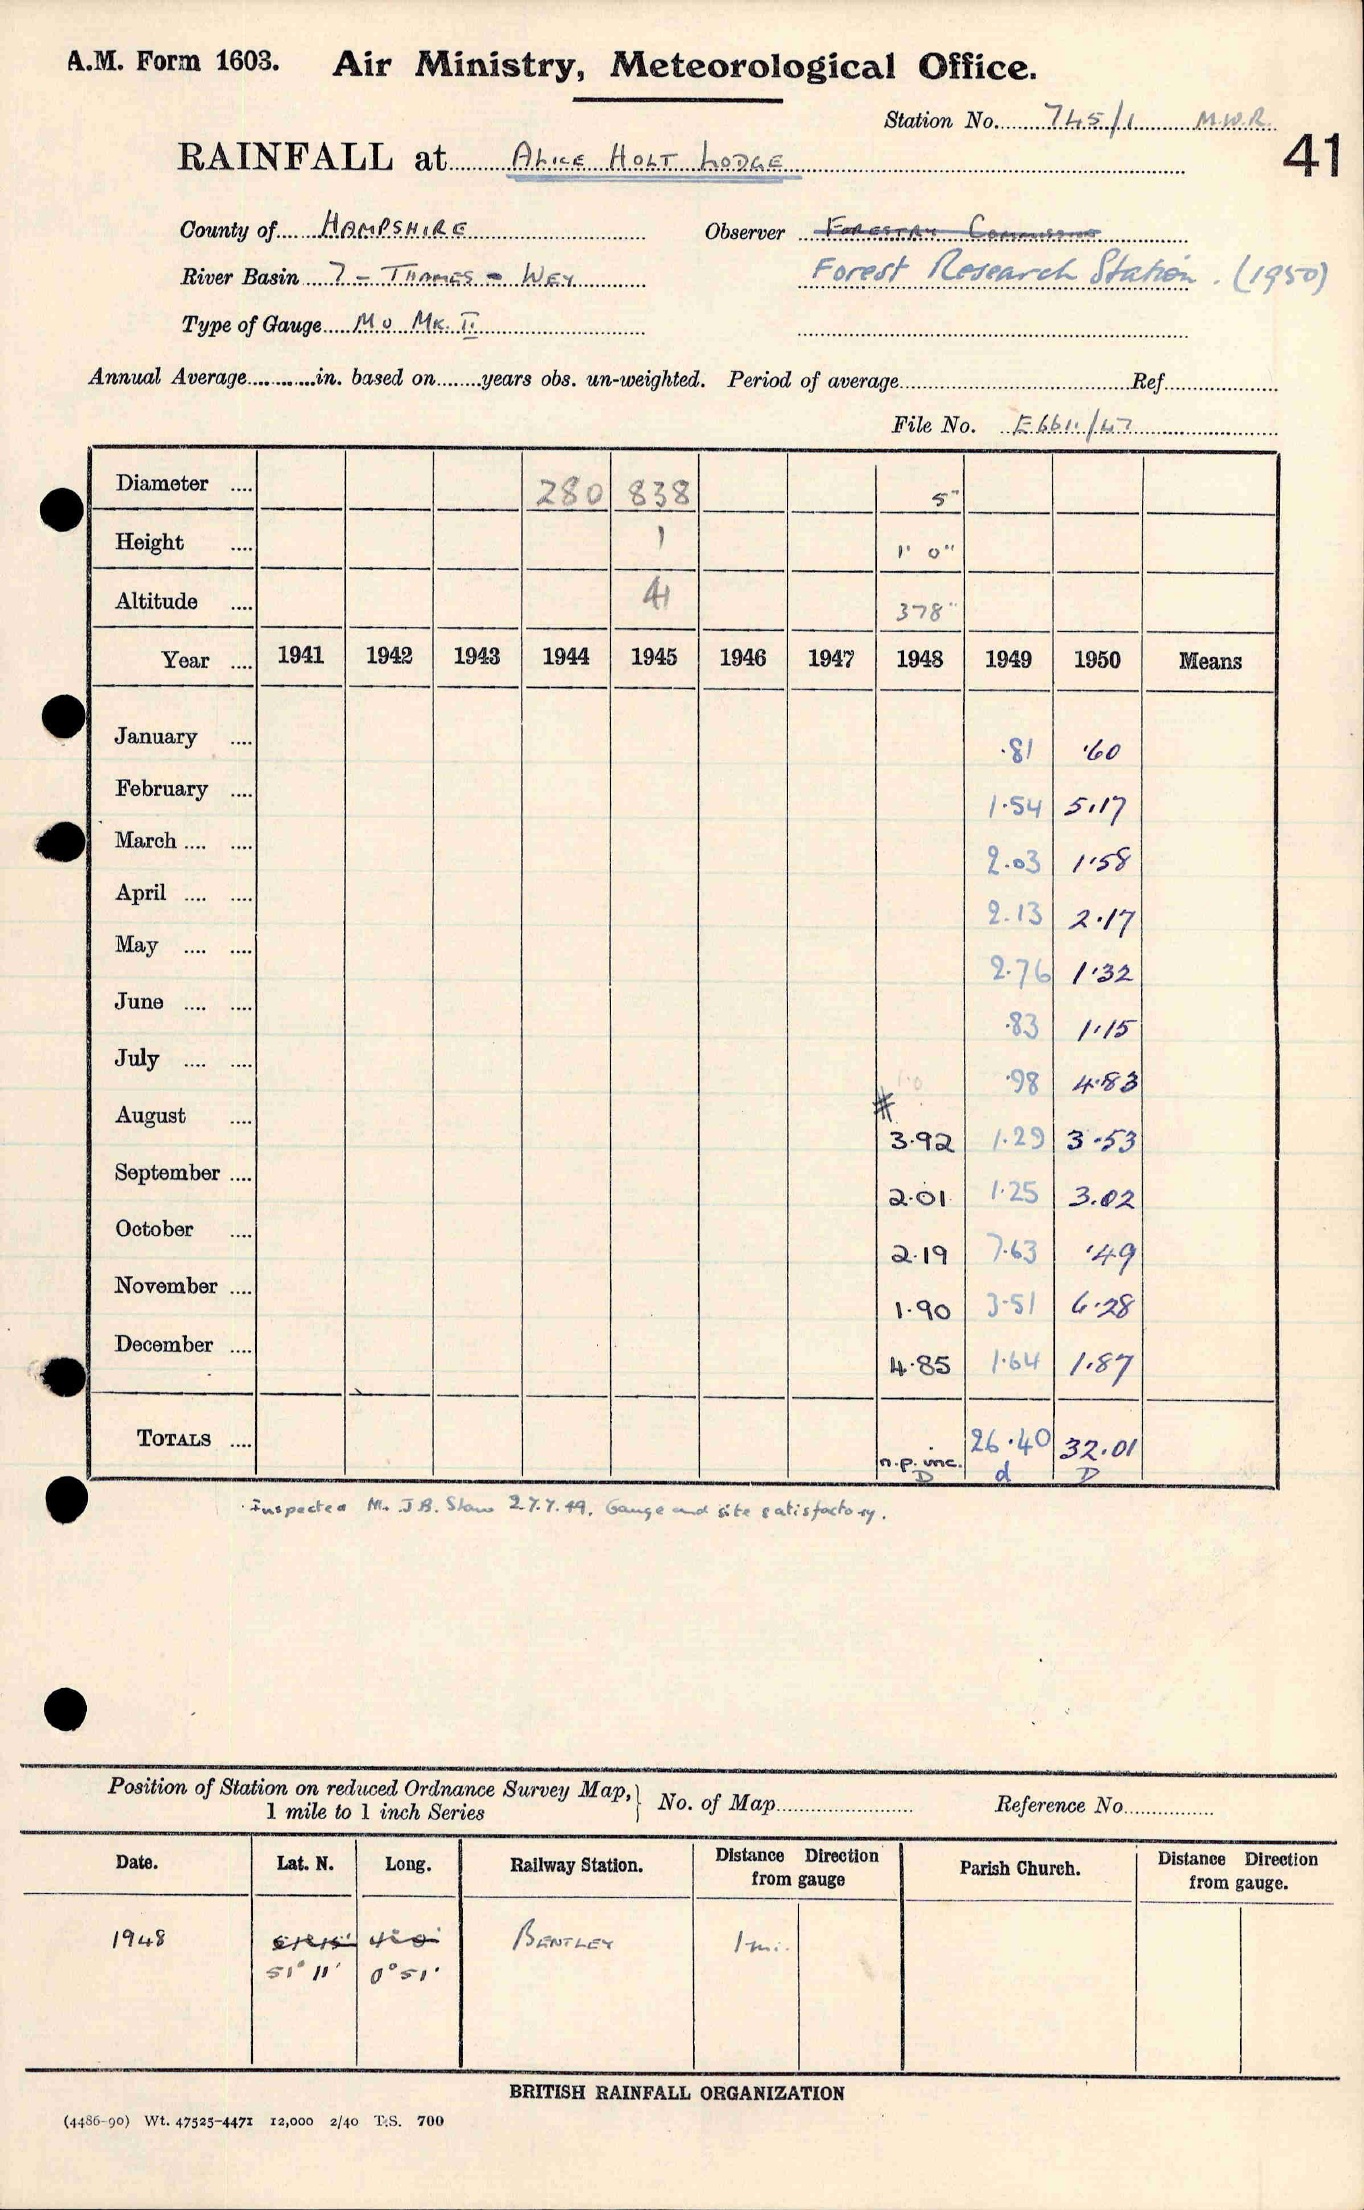 A.M. Form 1603. Air Ministry, Meteorological Office.
Station No. 745/1 M.W.R.
41
RAINFALL at ALICE HOLT LODGE
County of HAMPSHIRE Observer FORESTRY COMMISSION
River Basin 7 - THAMES - WEY Forest Research Station. (1950)
Type of Gauge MO MK. II
Annual Average............in. based on........years obs. un-weighted. Period of average............Ref............
File No. E6611/47
Diameter .... 280 838 5"
Height .... 1 1' 0"
Altitude .... 41 378"
Year .... 1941 1942 1943 1944 1945 1946 1947 1948 1949 1950 Means
January .... ·81 ·60
February .... 1·54 5·17
March .... .... 2·03 1·58
April .... .... 2·13 2·17
May .... .... 2·76 1·32
June .... .... ·83 1·15
July .... .... ·98 4·83
August .... # 3·92 1·29 3·53
September .... 2·01 1·25 3·02
October .... 2·19 7·63 ·49
November .... 1·90 3·51 6·28
December .... 4·85 1·64 1·87
TOTALS .... n.p. inc. 26·40 32·01
D d D
Inspected Mr. J.B. 27.7.49. Gauge and site satisfactory.
Position of Station on reduced Ordnance Survey Map,
1 mile to 1 inch Series } No. of Map............ Reference No............
Date. Lat. N. Long. Railway Station. Distance Direction from gauge Parish Church. Distance Direction from gauge.
1948 BENTLEY 1 mi.
51° 11' 0° 51'
BRITISH RAINFALL ORGANIZATION
(4486-90) Wt. 47525-4471 12,000 2/40 T.S. 700